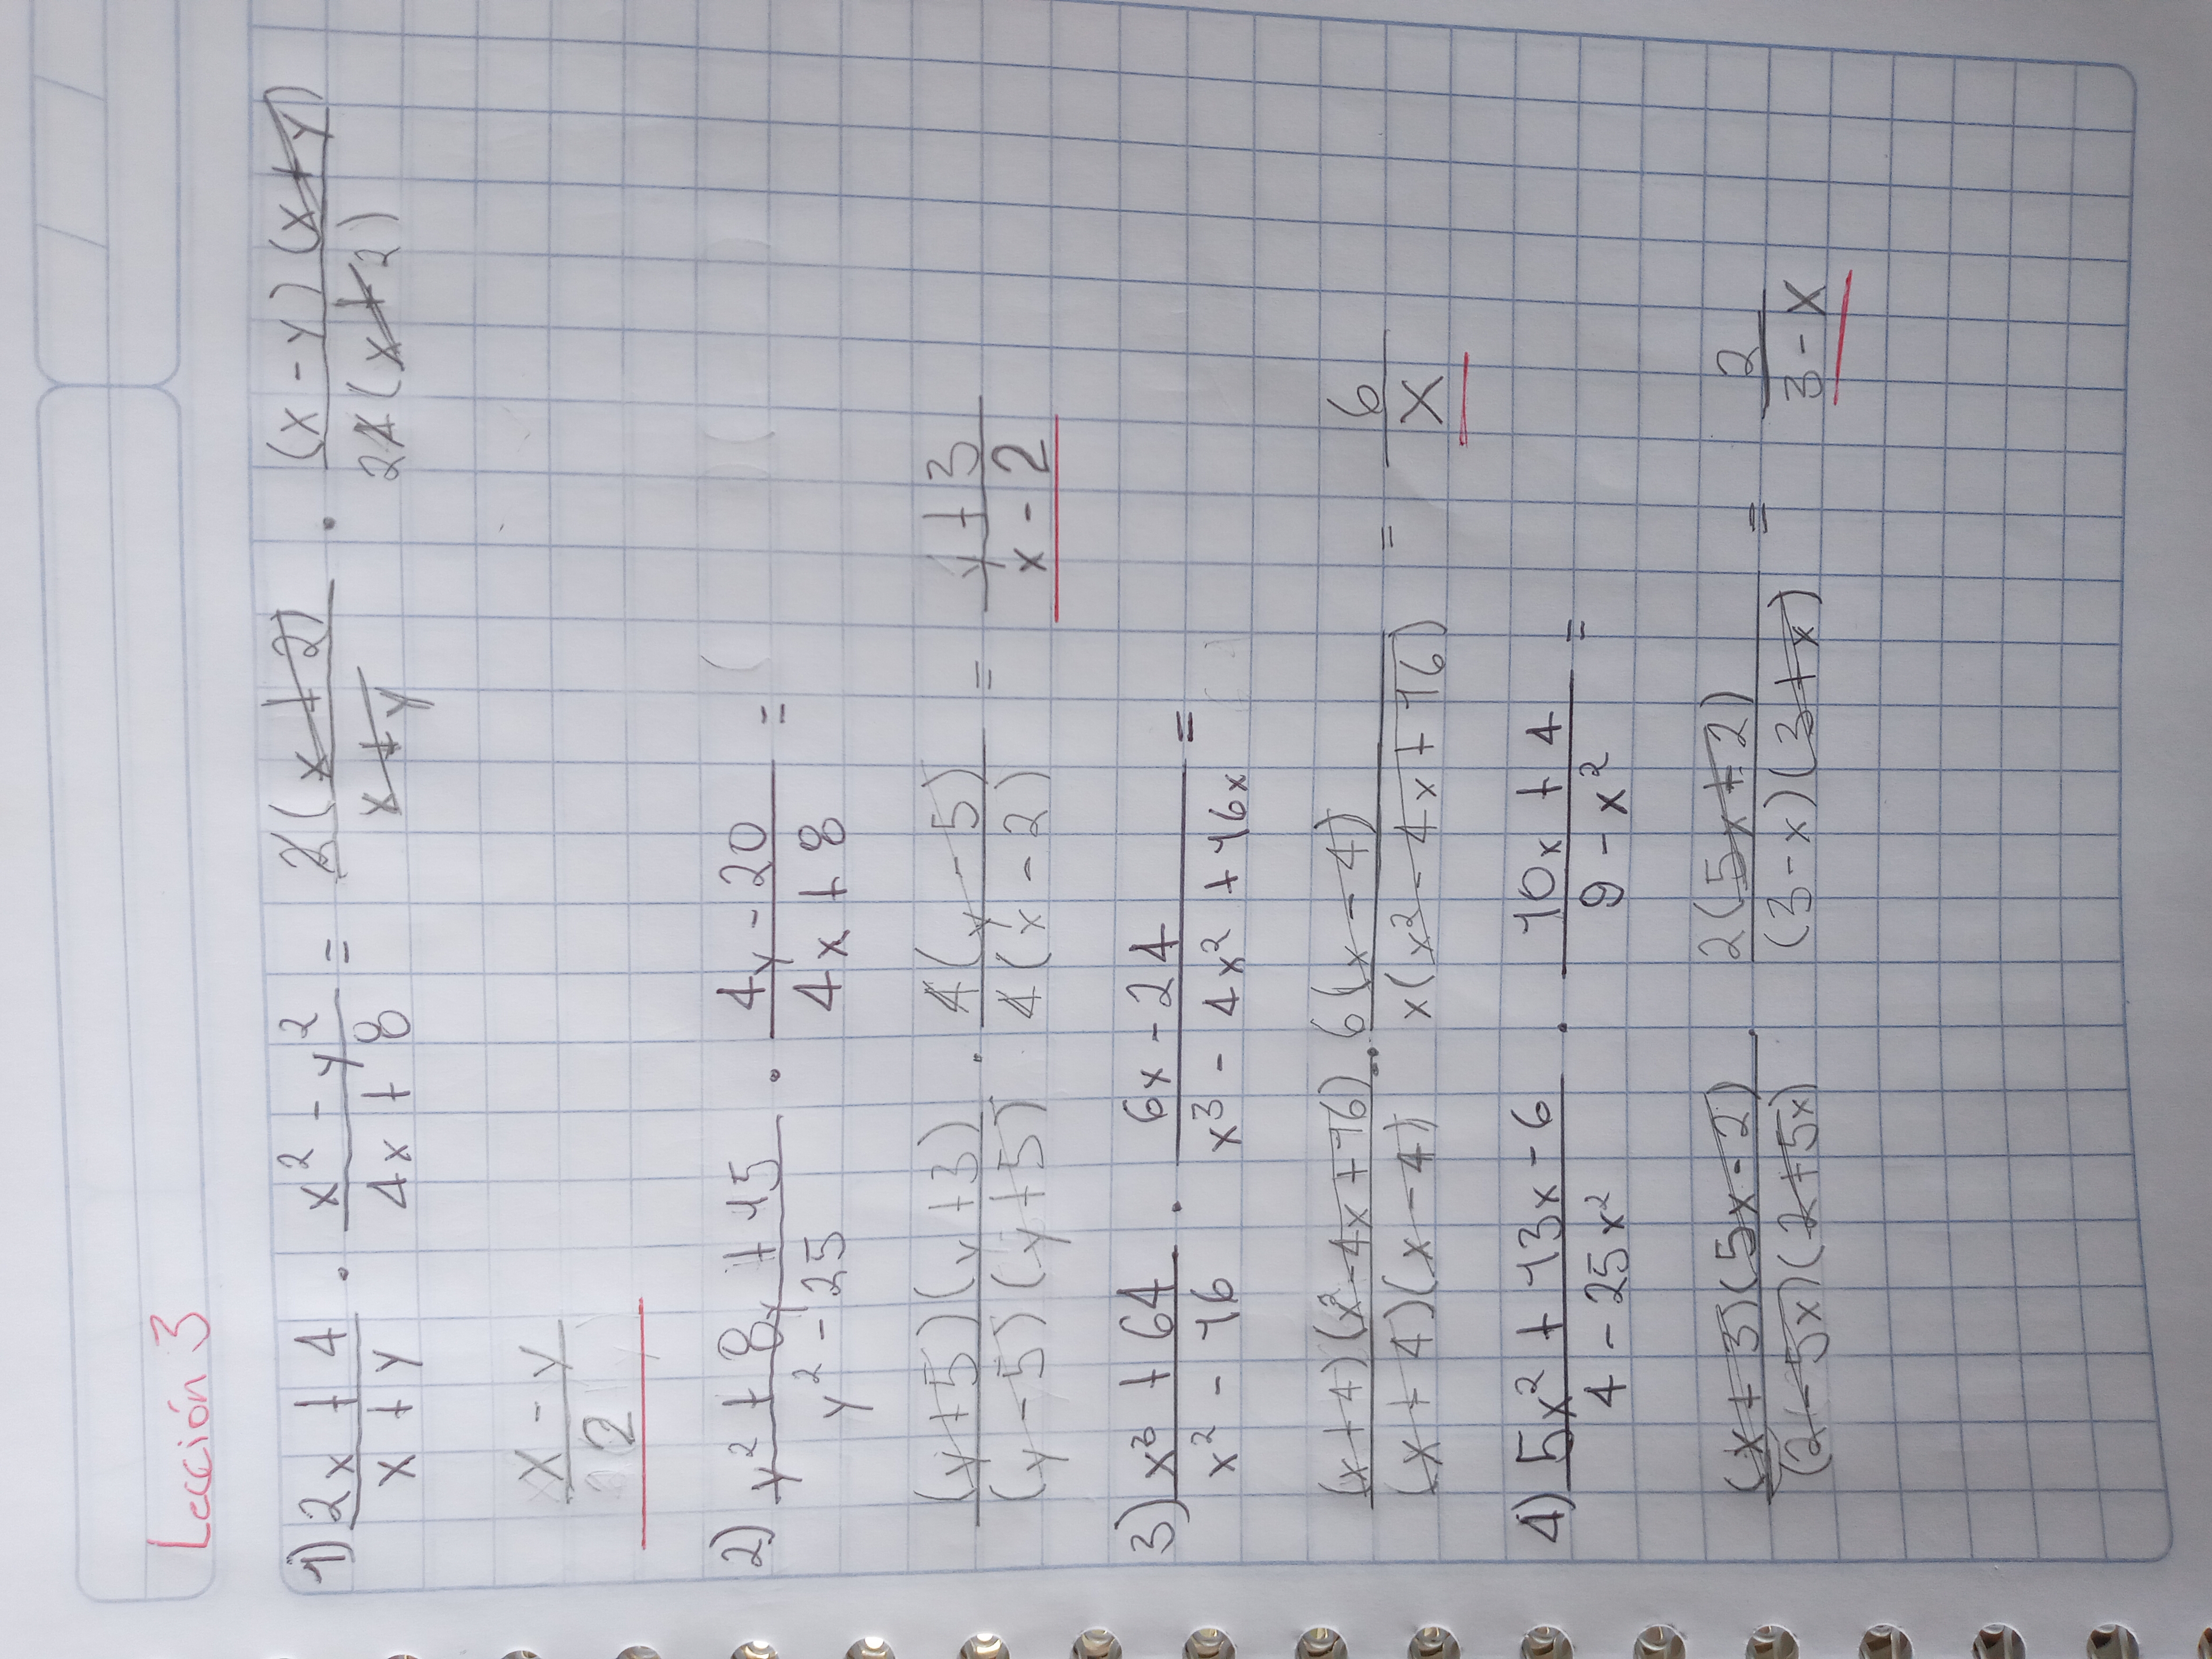 Lección 3
1) (2x + 4)/(x + y) · (x² - y²)/(4x + 8) = 2(x+2)/(x+y) · (x - y)(x+y)/24(x+2)
(x - y)/2
2) (y² + 8y + 15)/(y² - 25) · (4y - 20)/(4x + 8) =
(y+5)(y+3)/(y-5)(y+5) · 4(y-5)/4(x-2) = (y+3)/(x-2)
3) (x³ + 64)/(x² - 16) · (6x - 24)/(x³ - 4x² + 16x) =
(x+4)(x²-4x+16)/(x+4)(x-4) · 6(x-4)/x(x²-4x+16) = 6/x
4) (5x² + 13x - 6)/(4 - 25x²) · (10x + 4)/(9 - x²) =
(x+3)(5x-2)/(2-5x)(2+5x) · 2(5x+2)/(3-x)(3+x) = 2/(3-x)